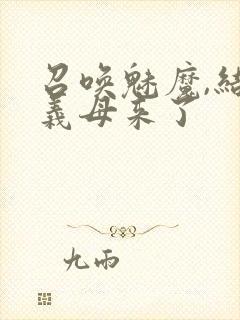 召唤魅魔,结
義母来了
九雨